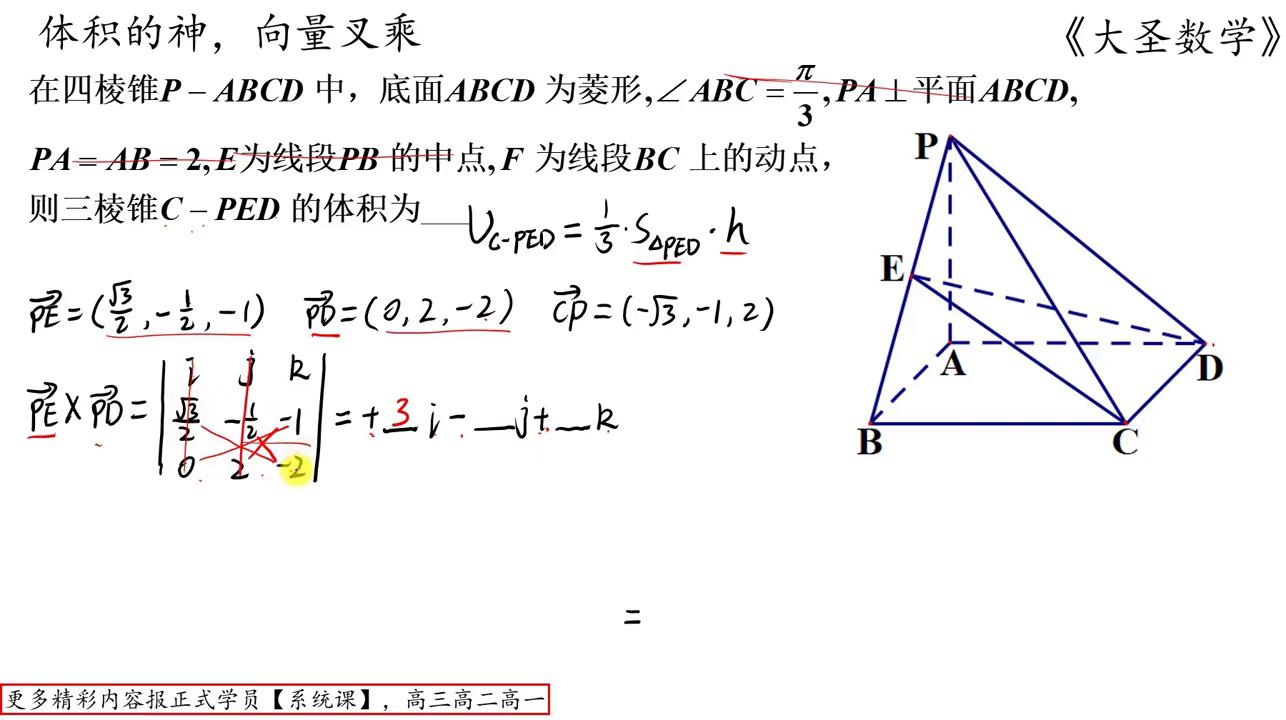 体积的神，向量叉乘
《大圣数学》
在四棱锥P – ABCD 中，底面ABCD 为菱形,∠ABC = π/3, PA⊥平面ABCD,
PA = AB = 2, E为线段PB 的中点, F 为线段BC 上的动点，
则三棱锥C – PED 的体积为___
V_{C-PED} = 1/3 · S_{△PED} · h
PE = (√3/2, -1/2, -1) PD = (0, 2, -2) CP = (-√3, -1, 2)
PE × PD = | i j k | = + 3 i - __ j + __ k
√3/2 -1/2 -1
0 2 -2
=
P
E
A
D
B
C
更多精彩内容报正式学员【系统课】，高三高二高一